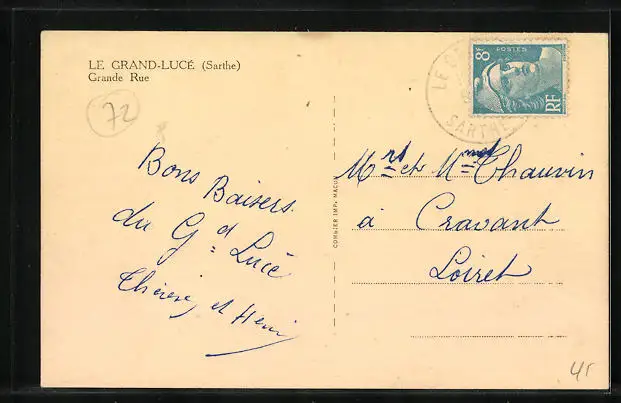 LE GRAND-LUCÉ (Sarthe)
Grande Rue
72
Bons Baisers
du Gd Lucé
Thérèse et Henri
CORMIER IMP. MACON
8F
POSTES
RF
SARTHE
Mr et Mme Chauvin
à Cravant
Loiret